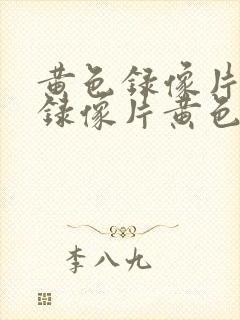 黄色録像片
録像片黄色
李八九